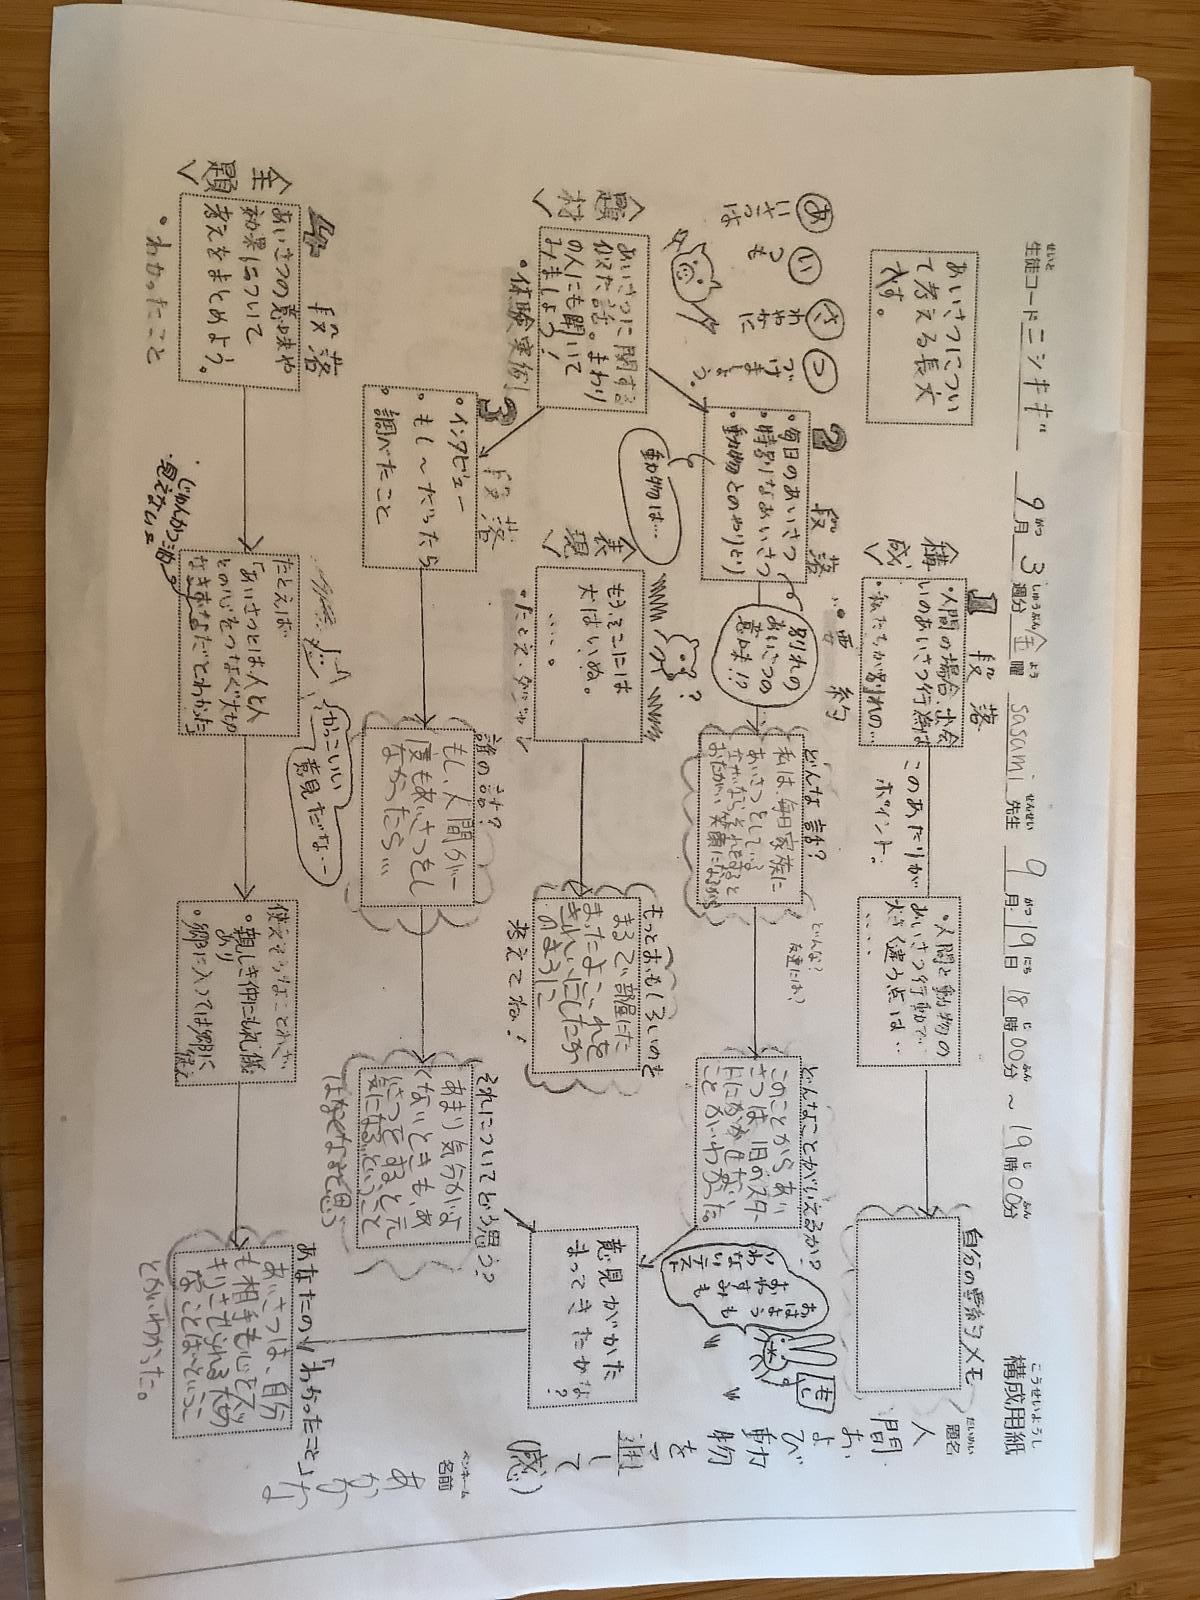 生徒コード ニシキギ 9月 3週分 金曜 sasami 先生 9月19日 18時00分 ~ 19時00分
構成用紙
題名
人間および動物を通して(感)
ペンネーム
名前
あいさつについ
て考える長文
です。
<構成>
1段落
・人間の場合、出会
いのあいさつ行動は
・私たちが別れの…
・要約
このあたりが
ポイント。
・人間と動物の
あいさつ行動で、
大きく違う点は…
自分の要約メモ
あいさつは
いつも
さわやかに
つづけましょう。
<題材>
あいさつに関する
似た話。まわり
の人にも聞いて
みましょう!
・体験実例
2段落
・毎日のあいさつ
・特別なあいさつ
・動物とのやりとり
動物は…
別れの
あいさつの
意味!?
どんな話?
私は、毎日家族に
あいさつをしている
なぜなら、それをすると
おたがい笑顔になるから
どんな?
友達には?
どんなことがいえるか?
このことからあい
さつは、1日のスター
トにかかせない
ことがわかった。
おはよう
もおやすみも
いわない
<表現>
もうそこには
犬はいぬ。
・・・・。
・たとえ・ダジャレ
?
もっとおもしろいのを
まるで、部屋にた
まったよごれを
きれいにしたか
のように
考えてね!
意見がかた
まってきたかな?
3段落
・インタビュー
・もし~だったら
・調べたこと
誰の話?
もし、人間が一
度もあいさつをし
なかったら…
それについてどう思う?
あまり気分がよ
くないときも、あ
いさつをすると元
気になるということ
はなぞだなぁと思う
<主題>
4段落
あいさつの意味や
効果について
考えをまとめよう。
・わかったこと
たとえば
「あいさつとは人と人
との心をつなぐ大切
なきずなだとわかった
・じゅんかつ油
・見えない
かっこいい
意見だな…
使えそうなことわざ
・親しき仲にも礼儀
あり
・郷に入っては郷に
従え
あなたの「わかったこと」
あいさつは、自分
も相手も心をスッ
キリさせられる大切
なことばということ
とがわかった。